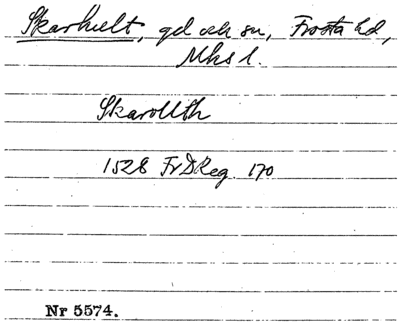 Skarhult, gd och sn, Frosta hd,
Mhs l.
Skarollth
1528 FrDReg. 170
Nr 5574.